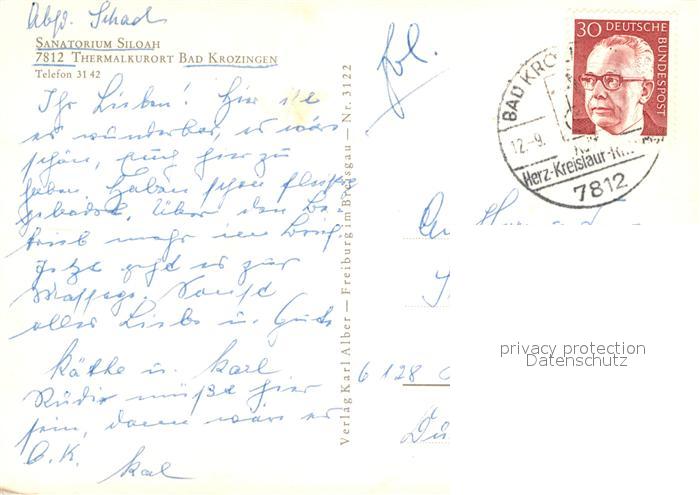 Abs. Schad
SANATORIUM SILOAH
7812 THERMALKURORT BAD KROZINGEN
Telefon 31 42
Ihr Lieben! Hier ist
es wunderbar, es wäre
schön, euch hier zu
haben. Haben schon fleißig
gebadet. Über den Be-
trieb mehr im Brief.
Jetzt geht es zur
Massage. Sonst
alles Liebe u. Gute
Käthe u. Karl
Rudi müßte hier
sein, dann wäre er
O.K.
Karl
Verlag Karl Alber — Freiburg im Breisgau — Nr. 3122
30 DEUTSCHE BUNDESPOST
BAD KRO
12.-9.
Herz-Kreislauf-
7812
6128
privacy protection
Datenschutz